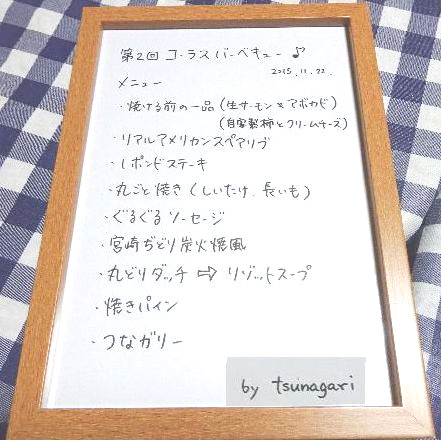 第2回 コーラスバーベキュー♪
2015.11.22.
メニュー
・焼ける前の一品(生サーモンとアボカド)
(自家製柿とクリームチーズ)
・リアルアメリカンスペアリブ
・1ポンドステーキ
・丸ごと焼き(しいたけ、長いも)
・ぐるぐるソーセージ
・宮崎ぢどり炭火焼風
・丸どりダッチ ⇨ リゾットスープ
・焼きパイン
・つなガリー
by tsunagari